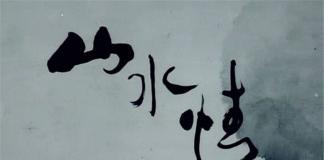 山水情